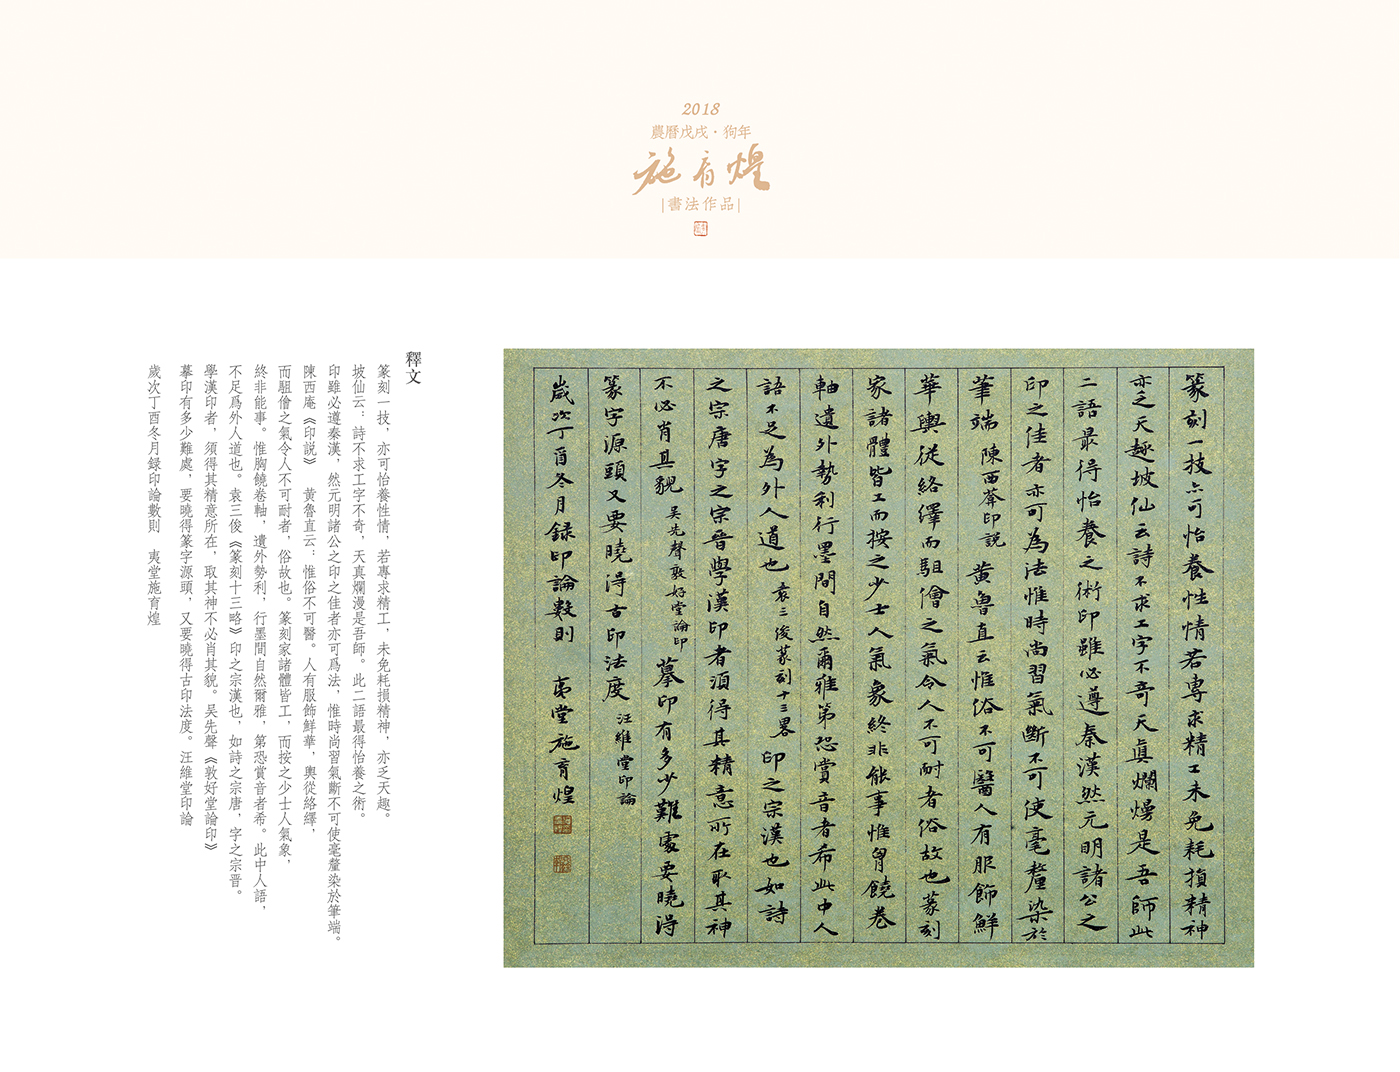 2018
農曆戊戌·狗年
施育煌
|書法作品|
篆刻一技亦可怡養性情若專求精工未免耗損精神
亦乏天趣坡仙云詩不求工字不奇天真爛熳是吾師此
二語最得怡養之術印雖必遵秦漢然元明諸公之
印之佳者亦可為法惟時尚習氣斷不可使毫釐染於
筆端 陳西菴印説 黄魯直云惟俗不可醫人有服飾鮮
華輿從絡繹而駔儈之氣令人不可耐者俗故也篆刻
家諸體皆工而按之少士人氣象終非能事惟胷饒卷
軸遺外勢利行墨間自然爾雅第恐賞音者希此中人
語不足為外人道也 袁三俊篆刻十三畧 印之宗漢也如詩
之宗唐字之宗晉學漢印者須得其精意所在取其神
不必肖其貌 吴先聲敦好堂論印 摹印有多少難處要曉得
篆字源頭又要曉得古印法度 汪維堂印論
歲次丁酉冬月録印論數則 夷堂施育煌
釋文
篆刻一技，亦可怡養性情，若專求精工，未免耗損精神，亦乏天趣。
坡仙云：詩不求工字不奇，天真爛漫是吾師。此二語最得怡養之術。
印雖必遵秦漢，然元明諸公之印之佳者亦可爲法，惟時尚習氣斷不可使毫釐染於筆端。
陳西庵《印説》 黄魯直云：惟俗不可醫。人有服飾鮮華，輿從絡繹，
而駔儈之氣令人不可耐者，俗故也。篆刻家諸體皆工，而按之少士人氣象，
終非能事。惟胸饒卷軸，遺外勢利，行墨間自然爾雅，第恐賞音者希。此中人語，
不足爲外人道也。袁三俊《篆刻十三略》印之宗漢也，如詩之宗唐，字之宗晋。
學漢印者，須得其精意所在，取其神不必肖其貌。吴先聲《敦好堂論印》
摹印有多少難處，要曉得篆字源頭，又要曉得古印法度。汪維堂印論
歲次丁酉冬月録印論數則 夷堂施育煌